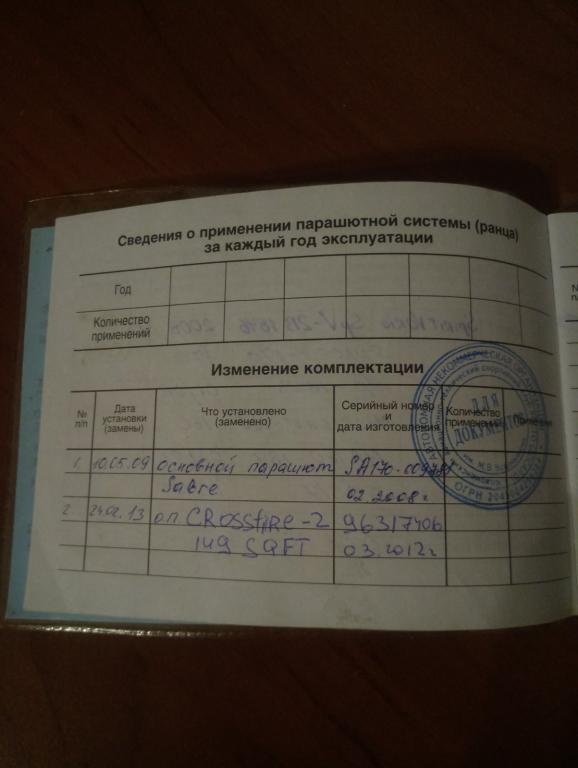 Сведения о применении парашютной системы (ранца)
за каждый год эксплуатации
Год
Количество
применений
Изменение комплектации
№
п/п
Дата
установки
(замены)
Что установлено
(заменено)
Серийный номер
и
дата изготовления
Количество
применений
Примечание
1. 10.05.09 основной парашют SA170-
Sabre 02.2008г
2. 24.02.13 о.п CROSSfiRe-2 96317406
149 SQFT 03.2012г
АВТОНОМНАЯ НЕКОММЕРЧЕСКАЯ
ДЛЯ
ДОКУМЕНТОВ
ОГРН
№
п/п